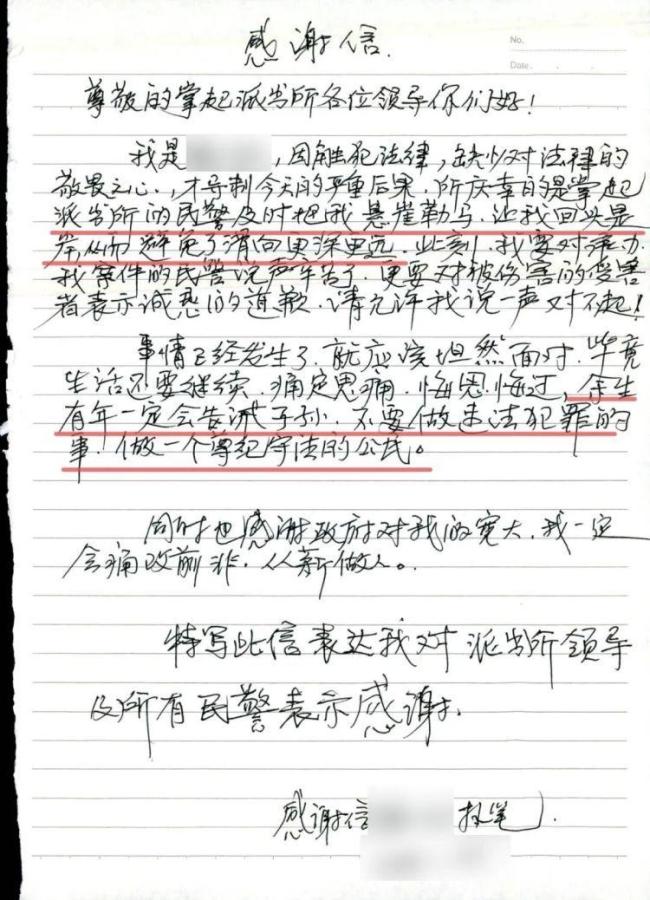 感谢信.
No.
Date.
尊敬的掌起派出所各位领导你们好!
我是，因触犯法律,缺少对法律的
敬畏之心.,才导制今天的严重后果.所庆幸的是掌起
派出所的民警及时把我悬崖勒马.让我回头是
岸,从而避免了滑向更深更远.此刻.我要对承办
我案件的民警说声辛苦了.更要对被伤害的受害
者表示诚恳的道歉.请允许我说一声对不起!
事情已经发生了.就应该坦然面对.毕竟
生活还要继续.痛定思痛.悔恩悔过,余生
有年一定会告诫子孙.不要做违法犯罪的
事.做一个尊纪守法的公民。
同时也感谢政府对我的宽大.我一定
会痛改前非.从新做人。
特写此信表达我对派出所领导
及所有民警表示感谢.
感谢信 执笔.